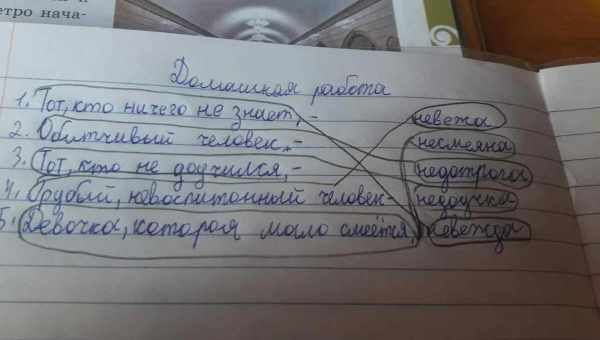 етро нача-
Домашняя работа
1. Тот, кто ничего не знает, - невежа
2. Обитчивый человек, - несмеяна
3. Тот, кто не доучился, - недотрога
4. Грубый, невоспитонный человек - недоучка
5. Девочка, которая мало смеётся, невежда